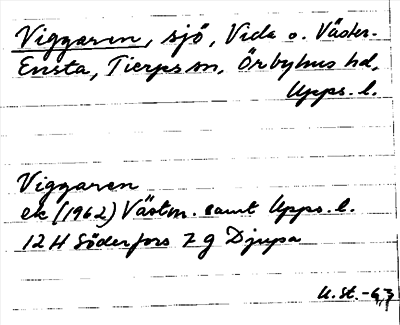 Viggaren, sjö, Vida o. Väster-
Ensta, Tierps sn, Örbyhus hd,
Upps. l.
Viggaren
ek (1962) Västm. samt Upps. l.
12 H Söderfors 7 g Djupa
U. St. -63